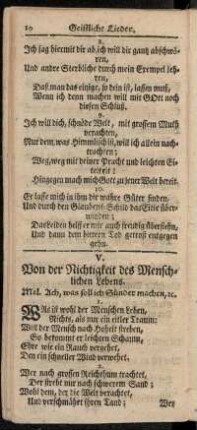 10 Geistliche Lieder.
8.
Ich sag hiermit dir ab ich will dir gantz abschwö-
ren,
Und andre Sterbliche durch mein Exempel leh-
ren,
Daß man das einige, so dein ist, lassen muß,
Wenn ich denn machen will mit GOtt noch
diesen Schluß.
9.
Ich will dich, schnöde Welt, mit grossem Muth
verachten,
Nur dem, was Himmlisch ist, will ich allein nach-
trachten;
Weg, weg mit deiner Pracht und leichten Ei-
telkeit:
Hingegen mach mich Gott zu jener Welt bereit.
10.
Er lasse mich in ihm die wahre Güter finden
Und durch den Glaubens-Schild das Eitle über-
winden;
Das Leiden helf er mir auch freudig überstehn,
Und dann dem bittern Tod getrost entgegen
gehn.
V.
Von der Nichtigkeit des Mensch-
lichen Lebens.
Mel. Ach, was soll ich Sünder machen, ꝛc.
1.
Was ist wohl der Menschen Leben,
Nichts, als nur ein eitler Traum:
Weil der Mensch nach Hoheit streben,
So bekommt er leichten Schaum,
Ehre wie ein Rauch vergehet,
Den ein schneller Wind verwehet.
2.
Wer nach grossen Reichthum trachtet,
Der strebt nur nach schwerem Sand;
Wohl dem, der die Welt verachtet,
Und verschmähet ihren Tand;
Wey